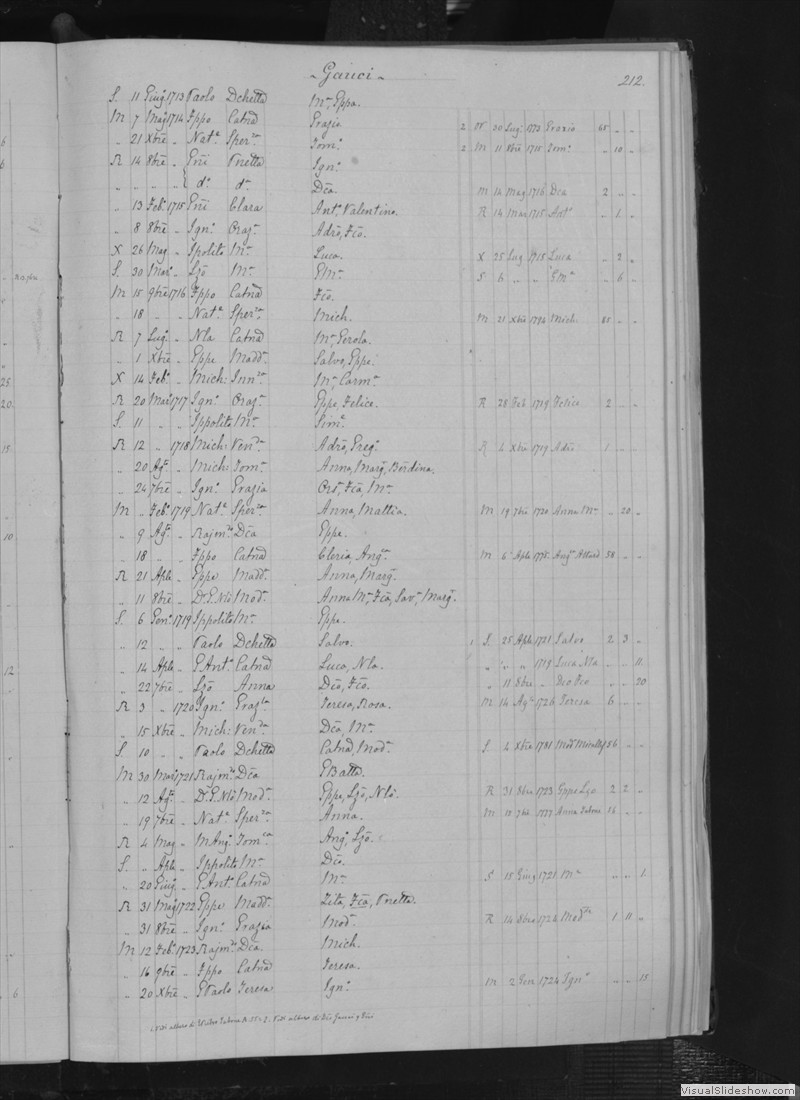 Gauci
212.
S. 11 Giug. 1713 Paolo Dchetta Ma. Eppa.
M 7 Mag. 1714 Fppo Catna Grazia 2 N 20 Lug. 1773 Grazia 65 " "
" 21 Xbre " Nata. Sperza. Toma. 2 M 11 8bre 1715 Toma. " 10 "
R 14 8bre " Eni Pnetta Igno.
" " " " { do. do. Dca M 14 Mag 1716 Dca 2 " "
" 13 Feb. 1715 Eni Clara Anto. Valentino. R 14 Mar 1715 Anto. " 1 "
" 8 8bre " Igno. Oraz. Adro, Fco.
X 26 Mag " Ipolito Ma. Luca. X 25 Lug 1715 Luca " 2 "
S. 30 Mar. " Lzo Ma. GMa. S 6 " " GMa " 6 "
M 15 9bre 1716 Fppo Catna Fco.
" 18 " " Nata. Sperza. Mich. M 21 Xbre 1794 Mich.
R 7 Lug. " Nla Catna Ma. Gerola.
" 1 Xbre " Eppe Madda. Salvo, Eppe.
X 14 Feb. " Mich: Innza. Ma. Carma.
R 20 Mar. 1717 Igno. Oraz. Eppe, Felice. R 28 Feb 1719 Felice 2 " "
S. 11 " " Ippolito Ma. Sim.
R 12 " 1718 Mich: Venda. Adro, Greg. R 6 Xbre 1719 Adro 1 " "
" 20 Ago. " Mich: Toma. Anna, Marg, Berdina.
" 24 7bre " Igno. Grazia Fca, Ma.
M " Feb. 1719 Nata. Sperza. Anna, Mattia. M 19 7bre 1720 Anna Ma. " 20 "
" 9 Ago. " Rajmdo. Dca Eppe.
" 18 " " Fppo Catna Cleria, Anga. M 6 Aple 1775 Anga. Attard 58 " "
R 21 Aple " Eppe Madda. Anna, Marg.
" 11 8bre " Dr. G. Nlo Moda. Anna Ma. Fca, Sav. Marg.
S. 6 Gen. 1719 Ippolito Ma. Eppe.
" 12 " " Paolo Dchetta Salvo. 1 S. 25 Aple 1721 Salvo 2 3 "
" 14 Aple " G. Anto. Catna Luca, Nla. " " " 1719 Luca Nla " " 11
" 22 7bre " Lzo Anna Dco, Fco. " 11 8bre " Dco Fco " " 20
R 3 " 1720 Igno. Grazia Teresa, Rosa. M 14 Ago. 1726 Teresa 6 " "
" 15 Xbre " Mich: Venda. Dca, Ma.
S. 10 " " Paolo Dchetta Catna, Moda. S 4 8bre 1781 Moda 56 " "
M 30 Mar. 1721 Rajmdo. Dca GBatta.
" 12 Ago. " Dr. G. Nlo Moda. Eppe, Lzo, Nlo. R 31 8bre 1723 Eppe Lzo 2 2 "
" 19 7bre " Nata. Sperza. Anna. M 10 7bre 1777 Anna "
R 4 Mag " MAng. Tomca Ang. Lzo.
S. " Aple " Ippolito Ma. Dco.
" 20 Giug. " G. Anto. Catna Ma. S 15 Giug 1721 Ma " " 1
R 31 Mag. 1722 Eppe Madda. Zita, Fca, Pnetta.
" 31 8bre " Igno. Grazia Moda. R 14 8bre 1724 Modta 1 11 "
M 12 Feb. 1723 Rajmdo. Dca Mich.
" 16 9bre " Fppo Catna Teresa.
" 20 Xbre " G Paolo Teresa Igno. M 2 Gen 1724 Igno. " " 15
6
6
25
20
15
10
12
6
VisualSlideshow.com